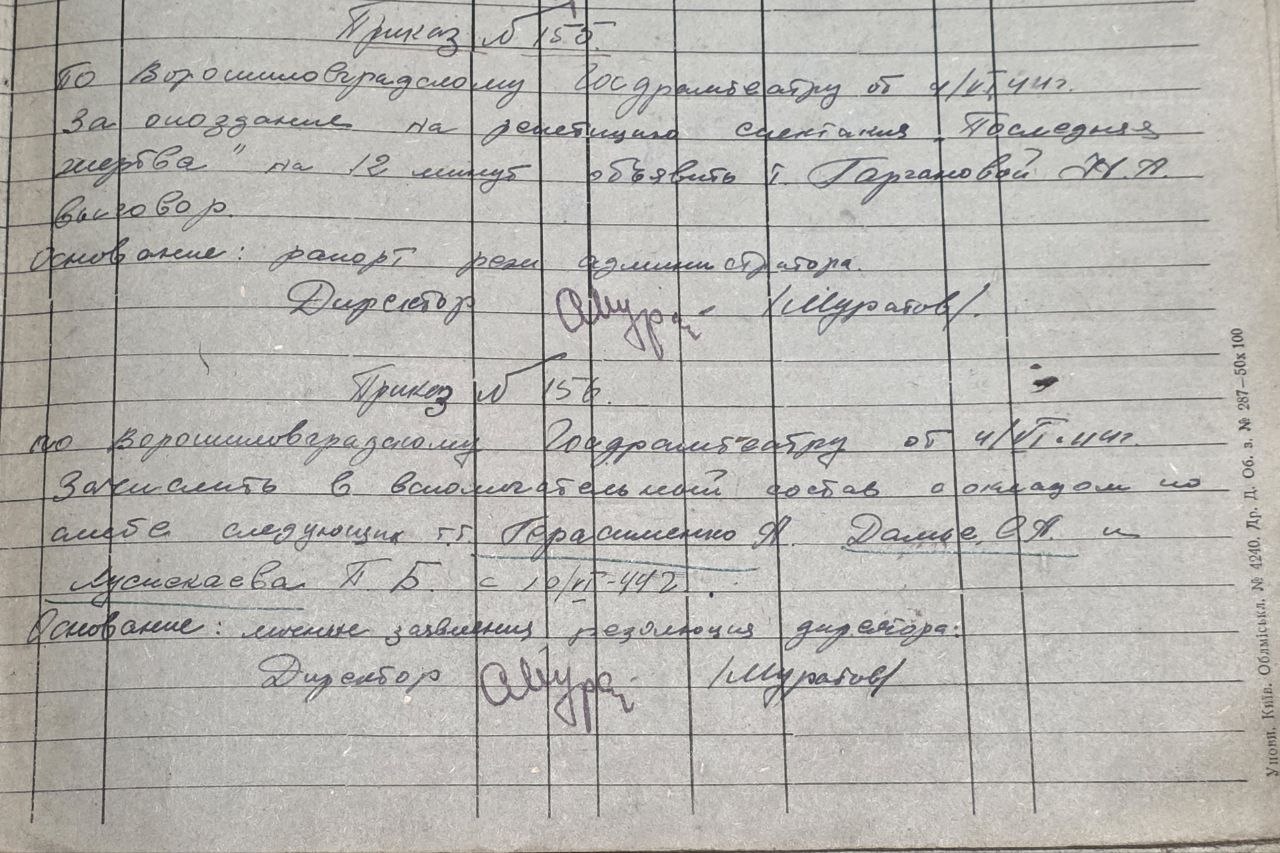 Приказ № 155.
По Ворошиловградскому Госдрамтеатру от 4/VI 44г.
За опоздание на репетицию спектакля „Последняя
жертва" на 12 минут объявить т. Таргановой Н. А.
выговор.
Основание: рапорт реж администратора.
Директор /Муратов/.
Приказ № 156.
по Ворошиловградскому Госдрамтеатру от 4/VI-44г.
Зачислить в вспомогательный состав с окладом по
смете следующих т.т. Герасименко А. С.А. и
Луспекаева П. Б. с 10/VI-44г.
Основание: личные заявления резолюция директора:
Директор /Муратов/
Уповн. Київ. Обліміськл. № 4240. Др. Д. Об. з. № 287—50х100